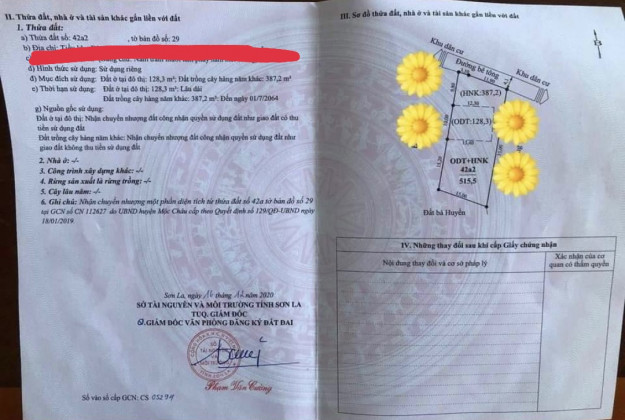 II. Thửa đất, nhà ở và tài sản khác gắn liền với đất
1. Thửa đất:
a) Thửa đất số: 42a2 , tờ bản đồ số: 29
b) Địa chỉ:
đ) Hình thức sử dụng: Sử dụng riêng
d) Mục đích sử dụng: Đất ở tại đô thị: 128,3 m²; Đất trồng cây hàng năm khác: 387,2 m²
e) Thời hạn sử dụng: Đất ở tại đô thị: 128,3 m²: Lâu dài
Đất trồng cây hàng năm khác: 387,2 m²: Đến ngày 01/7/2064
g) Nguồn gốc sử dụng:
Đất ở tại đô thị: Nhận chuyển nhượng đất công nhận quyền sử dụng đất như giao đất có thu
tiền sử dụng đất
Đất trồng cây hàng năm khác: Nhận chuyển nhượng đất công nhận quyền sử dụng đất như
giao đất không thu tiền sử dụng đất
2. Nhà ở: -/-
3. Công trình xây dựng khác: -/-
4. Rừng sản xuất là rừng trồng: -/-
5. Cây lâu năm: -/-
6. Ghi chú: Nhận chuyển nhượng một phần diện tích từ thửa đất số 42a tờ bản đồ số 29
tại GCN số CN 112827 do UBND huyện Mộc Châu cấp theo Quyết định số 129/QĐ-UBND ngày
18/01/2019.
Sơn La, ngày 16 tháng 12 năm 2020
SỞ TÀI NGUYÊN VÀ MÔI TRƯỜNG TỈNH SƠN LA
TUQ. GIÁM ĐỐC
GIÁM ĐỐC VĂN PHÒNG ĐĂNG KÝ ĐẤT ĐAI
Phạm Văn Cường
Số vào sổ cấp GCN: CS
III. Sơ đồ thửa đất, nhà ở và tài sản khác gắn liền với đất
Khu dân cư
Đường bê tông
Khu dân cư
(HNK:387,2)
(ODT:128,3)
ODT+HNK
42a2
515,5
Đất bà Huyền
IV. Những thay đổi sau khi cấp Giấy chứng nhận
Nội dung thay đổi và cơ sở pháp lý
Xác nhận của cơ
quan có thẩm quyền